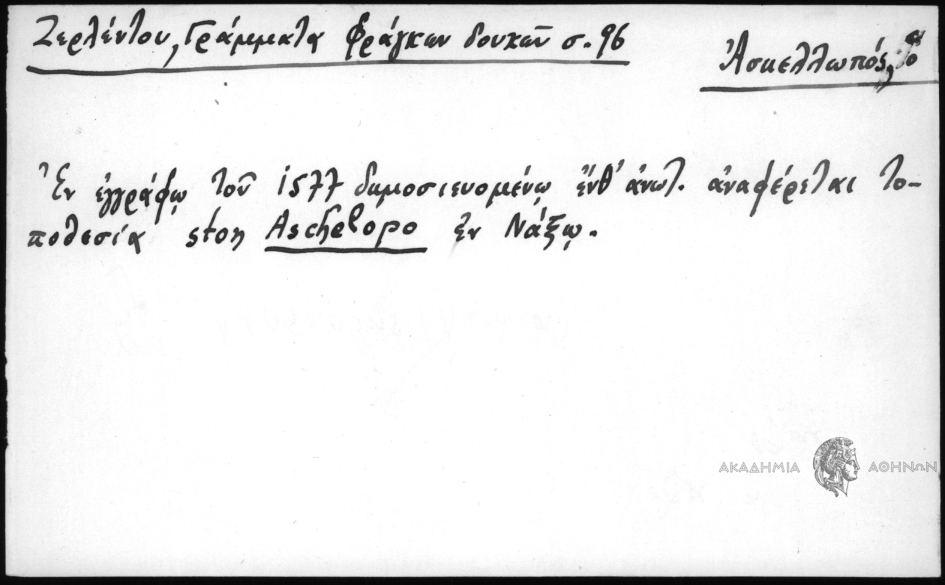 Ζερλέντου, Γράμματα Φράγκων δουκῶν σ. 96
Ἀσκελλωπός, ὁ
Ἐν ἐγγράφῳ τοῦ 1577 δημοσιευομένῳ ἔνθ' ἀνωτ. ἀναφέρεται το-
ποθεσία ston Aschelopo ἐν Νάξῳ.
ΑΚΑΔΗΜΙΑ ΑΘΗΝΩΝ